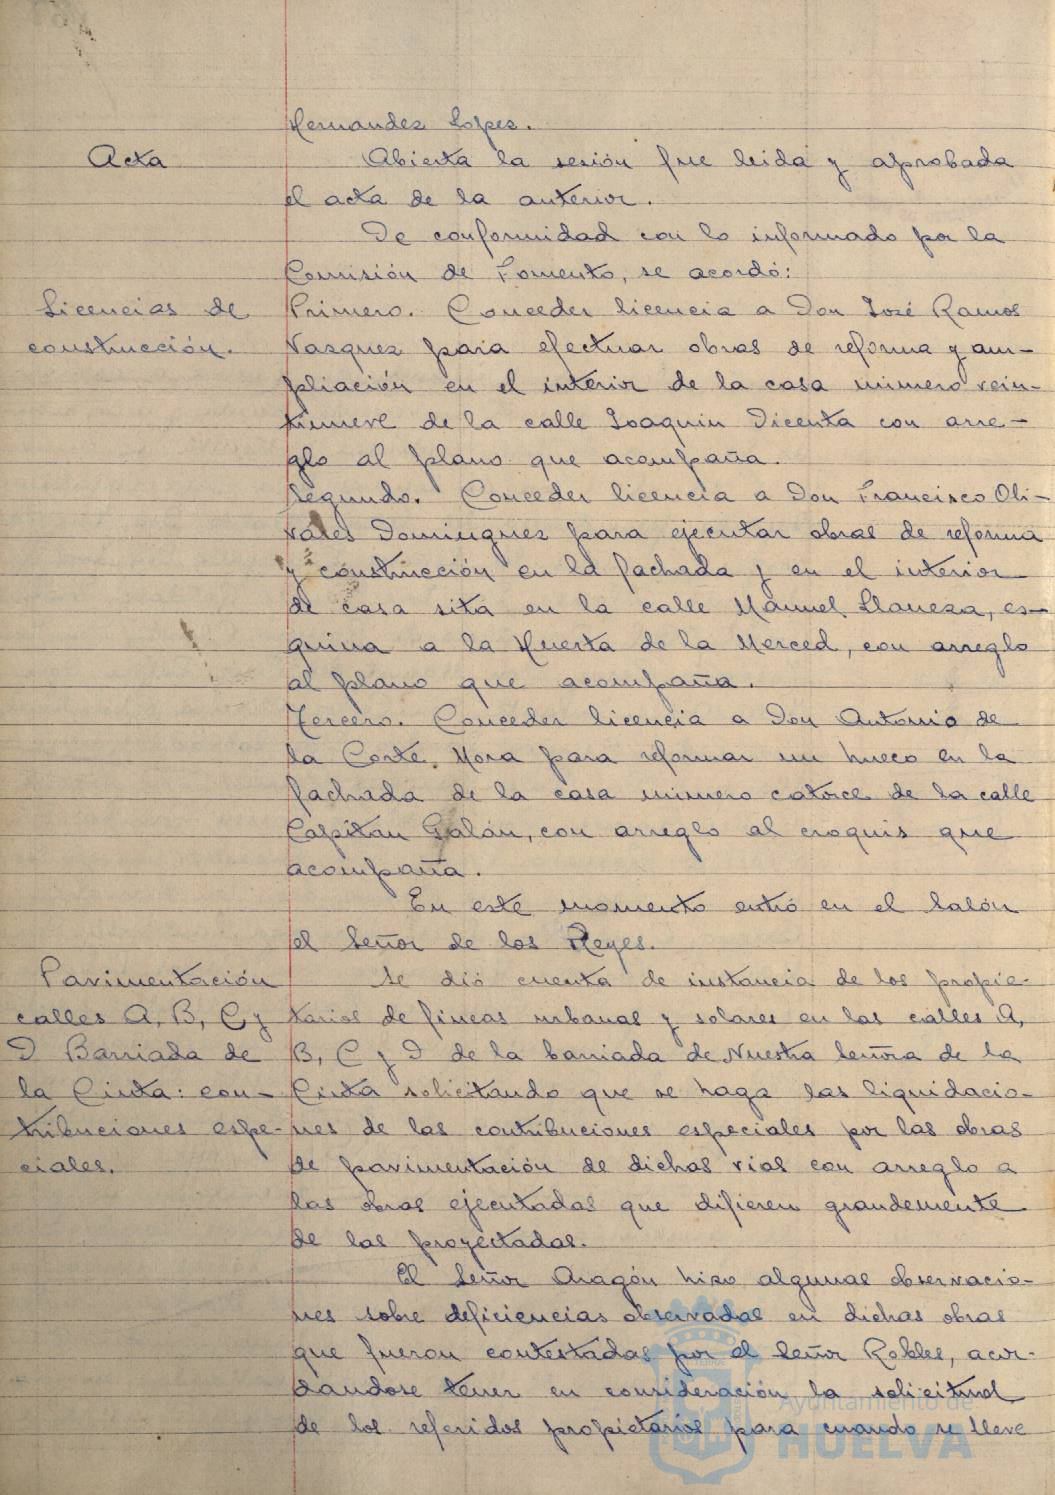 Hernandez Lopez.
Acta
Abierta la sesión fue leida y aprobada
el acta de la anterior.
De conformidad con lo informado por la
Comisión de Fomento, se acordó:
Licencias de
construcción.
Primero. Conceder licencia a Don José Ramos
Vazquez para efectuar obras de reforma y am-
pliación en el interior de la casa número vein-
tinueve de la calle Joaquin Dicenta con arre-
glo al plano que acompaña.
Segundo. Conceder licencia a Don Francisco Oli-
vares Dominguez para ejecutar obras de reforma
y construcción en la fachada y en el interior
de casa sita en la calle Manuel Llaneza, es-
quina a la Huerta de la Merced, con arreglo
al plano que acompaña.
Tercero. Conceder licencia a Don Antonio de
la Corte Mora para reformar un hueco en la
fachada de la casa número catorce de la calle
Capitán Galán, con arreglo al croquis que
acompaña.
En este momento entró en el Salón
el Señor de los Reyes.
Pavimentación
calles A, B, C y
D Barriada de
la Cinta: con-
tribuciones espe-
ciales.
Se dió cuenta de instancia de los propie-
tarios de fincas urbanas y solares en las calles A,
B, C y D de la barriada de Nuestra Señora de la
Cinta solicitando que se haga las liquidacio-
nes de las contribuciones especiales por las obras
de pavimentación de dichas vias con arreglo a
las obras ejecutadas que difieren grandemente
de las proyectadas.
El Señor Aragón hizo algunas observacio-
nes sobre deficiencias observadas en dichas obras
que fueron contestadas por el Señor Robles, acor-
dandose tener en consideración la solicitud
de los referidos propietarios para cuando se lleve
Ayuntamiento de
HUELVA